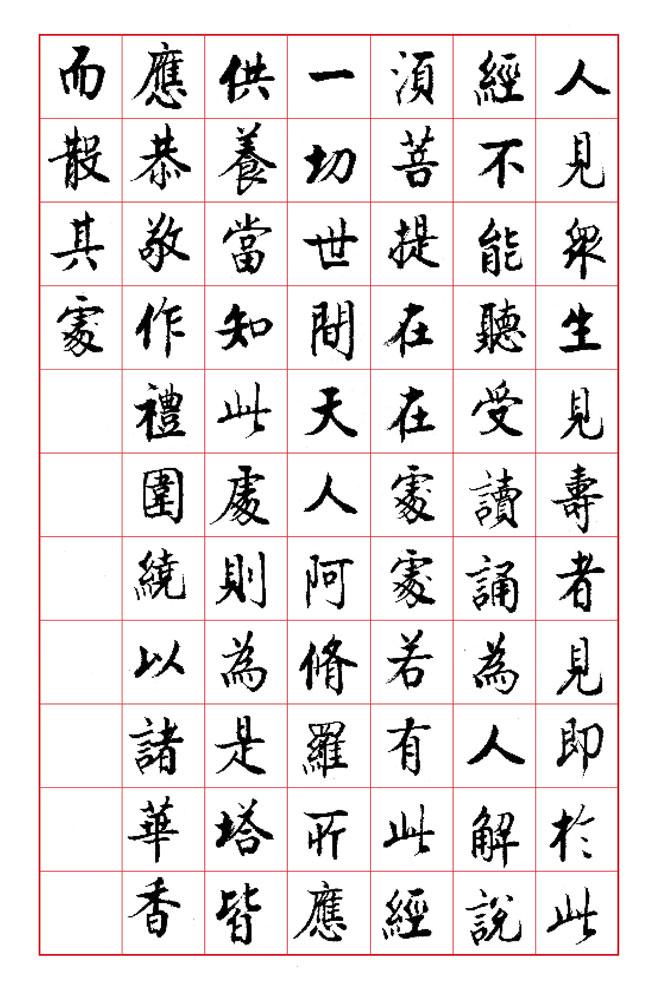 人見眾生見壽者見即於此
經不能聽受讀誦為人解說
湏菩提在在處處若有此經
一切世間天人阿脩羅所應
供養當知此處則為是塔皆
應恭敬作禮圍繞以諸華香
而散其處